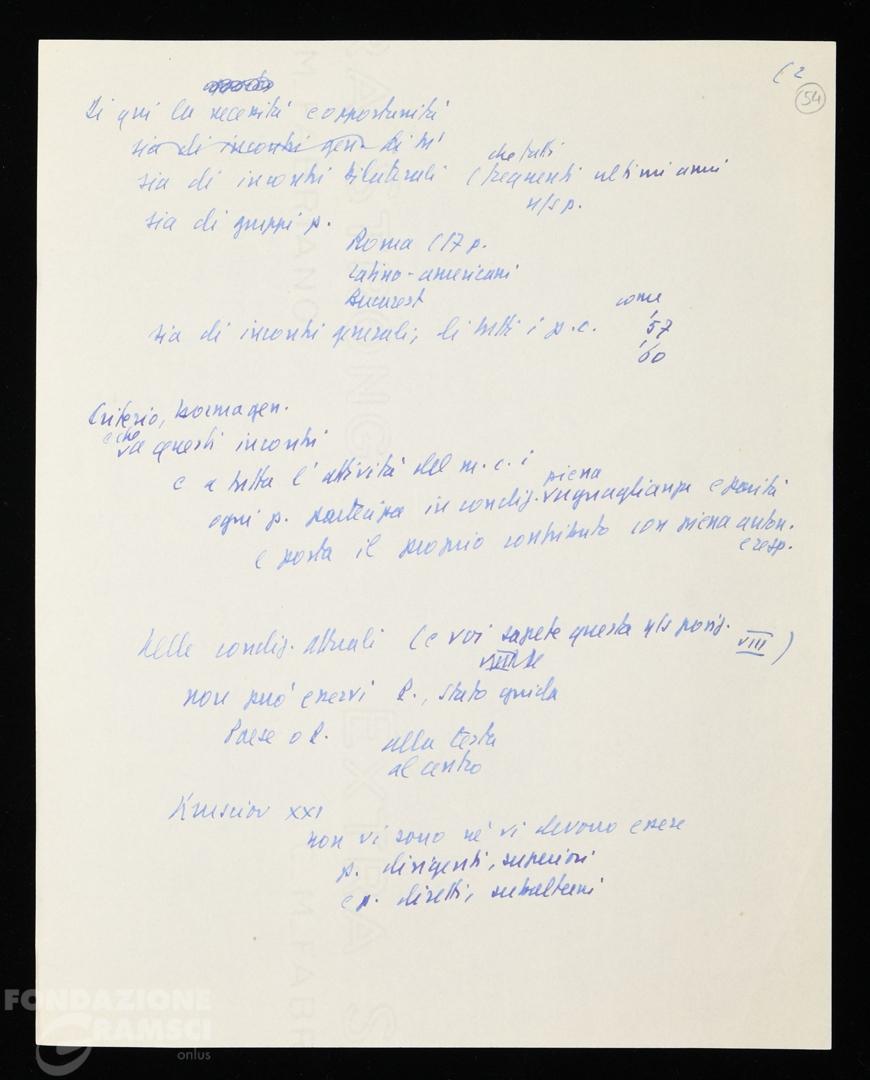 C 2
54
Di qui la necessità e opportunità
sia di incontri gen. di tu'
sia di incontri bilaterali (frequenti ultimi anni
che tutti
n/s p.
sia di gruppi p.
Roma (17 p.
Latino-americani
Bucarest
sia di incontri generali, di tutti i p.c.
come
'57
'60
Criterio, norma gen.
e che
a questi incontri
e a tutta l'attività del m.c.i
ogni p. partecipa in condiz. uguaglianza e parità
piena
e porta il proprio contributo con piena auton.
e resp.
Nelle condiz. attuali (e voi sapete questa n/s posiz. VIII)
non può esservi P., Stato guida
Paese o P.
alla testa
al centro
Krusciov XXI
non vi sono né vi devono essere
p. dirigenti, superiori
e p. diretti, subalterni
FONDAZIONE
GRAMSCI
onlus
EXTRA S
M. FABR